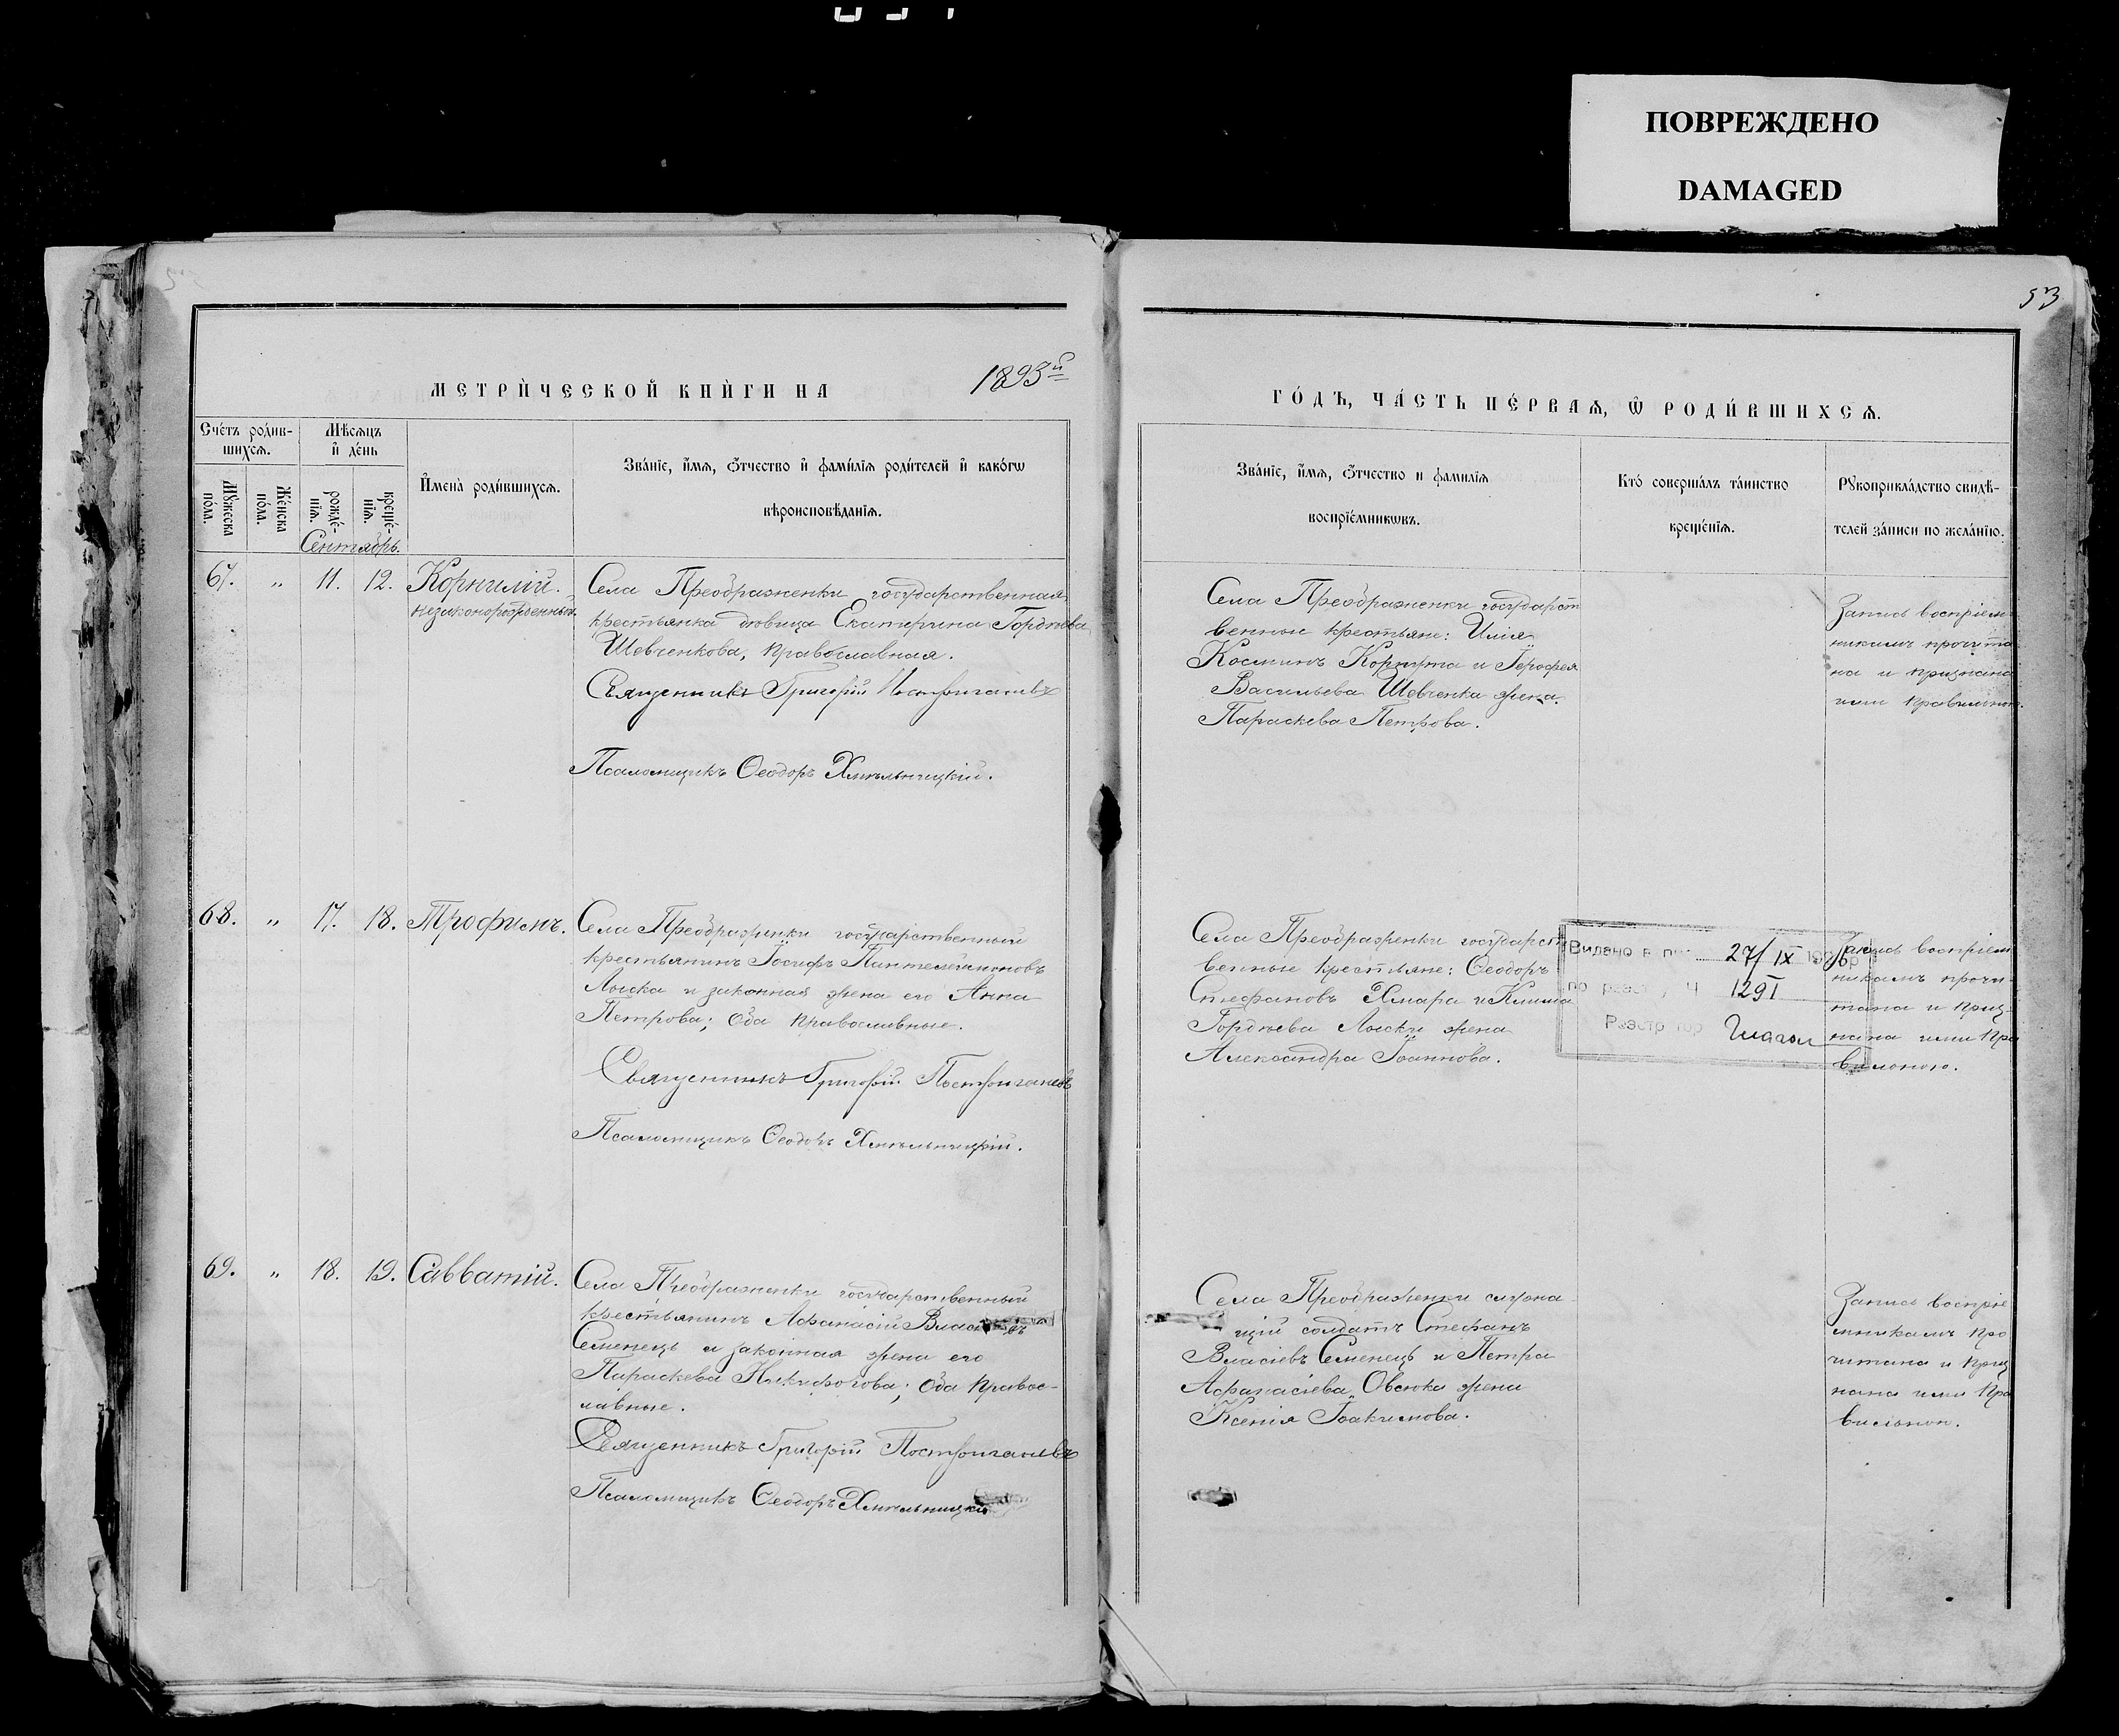 ПОВРЕЖДЕНО
DAMAGED
53
МЕТРИ́ЧЕСКОЙ КНИ́ГИ НА 1893й
ГО́ДЪ, ЧА́СТЬ ПЕ́РВАѦ, Ѡ РОДИ́ВШИХСѦ.
Сче́тъ роди́в-
шихсѧ.
Мꙋ́жеска
по́ла.
Же́нска
по́ла.
Мѣ́сѧцъ
и҆ де́нь
рожде́-
нїѧ.
креще́-
нїѧ.
Сентябрь.
И҆мена̀ роди́вшихсѧ.
Зва́нїе, и҆́мѧ, ѻ҆́тчество и҆ фами́лїѧ роди́телей и҆ како́гѡ
вѣроисповѣ́данїѧ.
Зва́нїе, и҆́мѧ, ѻ҆́тчество и фами́лїѧ
воспрїе́мникѡвъ.
Кто́ соверша́лъ та́инство
креще́нїѧ.
Рꙋкоприкла́дство свидѣ́-
телей за́писи по жела́нїю.
67. „ 11. 12. Корнилій.
незаконорожденный.
Села Преображенки государственная
крестьянка дѣвица Екатерина Гордѣева
Шевченкова, православная.
Священникъ Григорій
Псаломщикъ Ѳеодоръ Хмѣльницкій.
Села Преображенки государст
венные крестьяне: Илія
Косминъ и Іероѳея
Васильева Шевченка жена
Параскева Петрова.
Запись воспріем
никамъ прочита
на и признана
ими правильною.
68. „ 17. 18. Трофимъ.
Села Преображенки государственный
крестьянинъ Іосифъ Пантелеимоновъ
Лыска и законная жена его Анна
Петрова; оба православные.
Священникъ Григорій
Псаломщикъ Ѳеодоръ Хмѣльницкій.
Села Преображенки государст
венные крестьяне: Ѳеодоръ
Стефановъ Хмара и Клима
Гордѣева Лыски жена
Александра Іоаннова.
Видано 27/IX
1291
Запись воспріем
никамъ прочи
тана и приз-
нана ими пра
вильною.
69. „ 18. 19. Савватій.
Села Преображенки государственный
крестьянинъ Аѳанасій
Семенецъ и законная жена его
Параскева Никифорова; оба правос-
лавные.
Священникъ Григорій
Псаломщикъ Ѳеодоръ Хмѣльницкій
Села Преображенки служа
щій солдатъ Стефанъ
Власіевъ Семенецъ и Петра
Аѳанасіева Овсюка жена
Ксенія Іоакимова.
Запись воспріе
мникамъ про
читана и приз
нана ими пра
вильною.